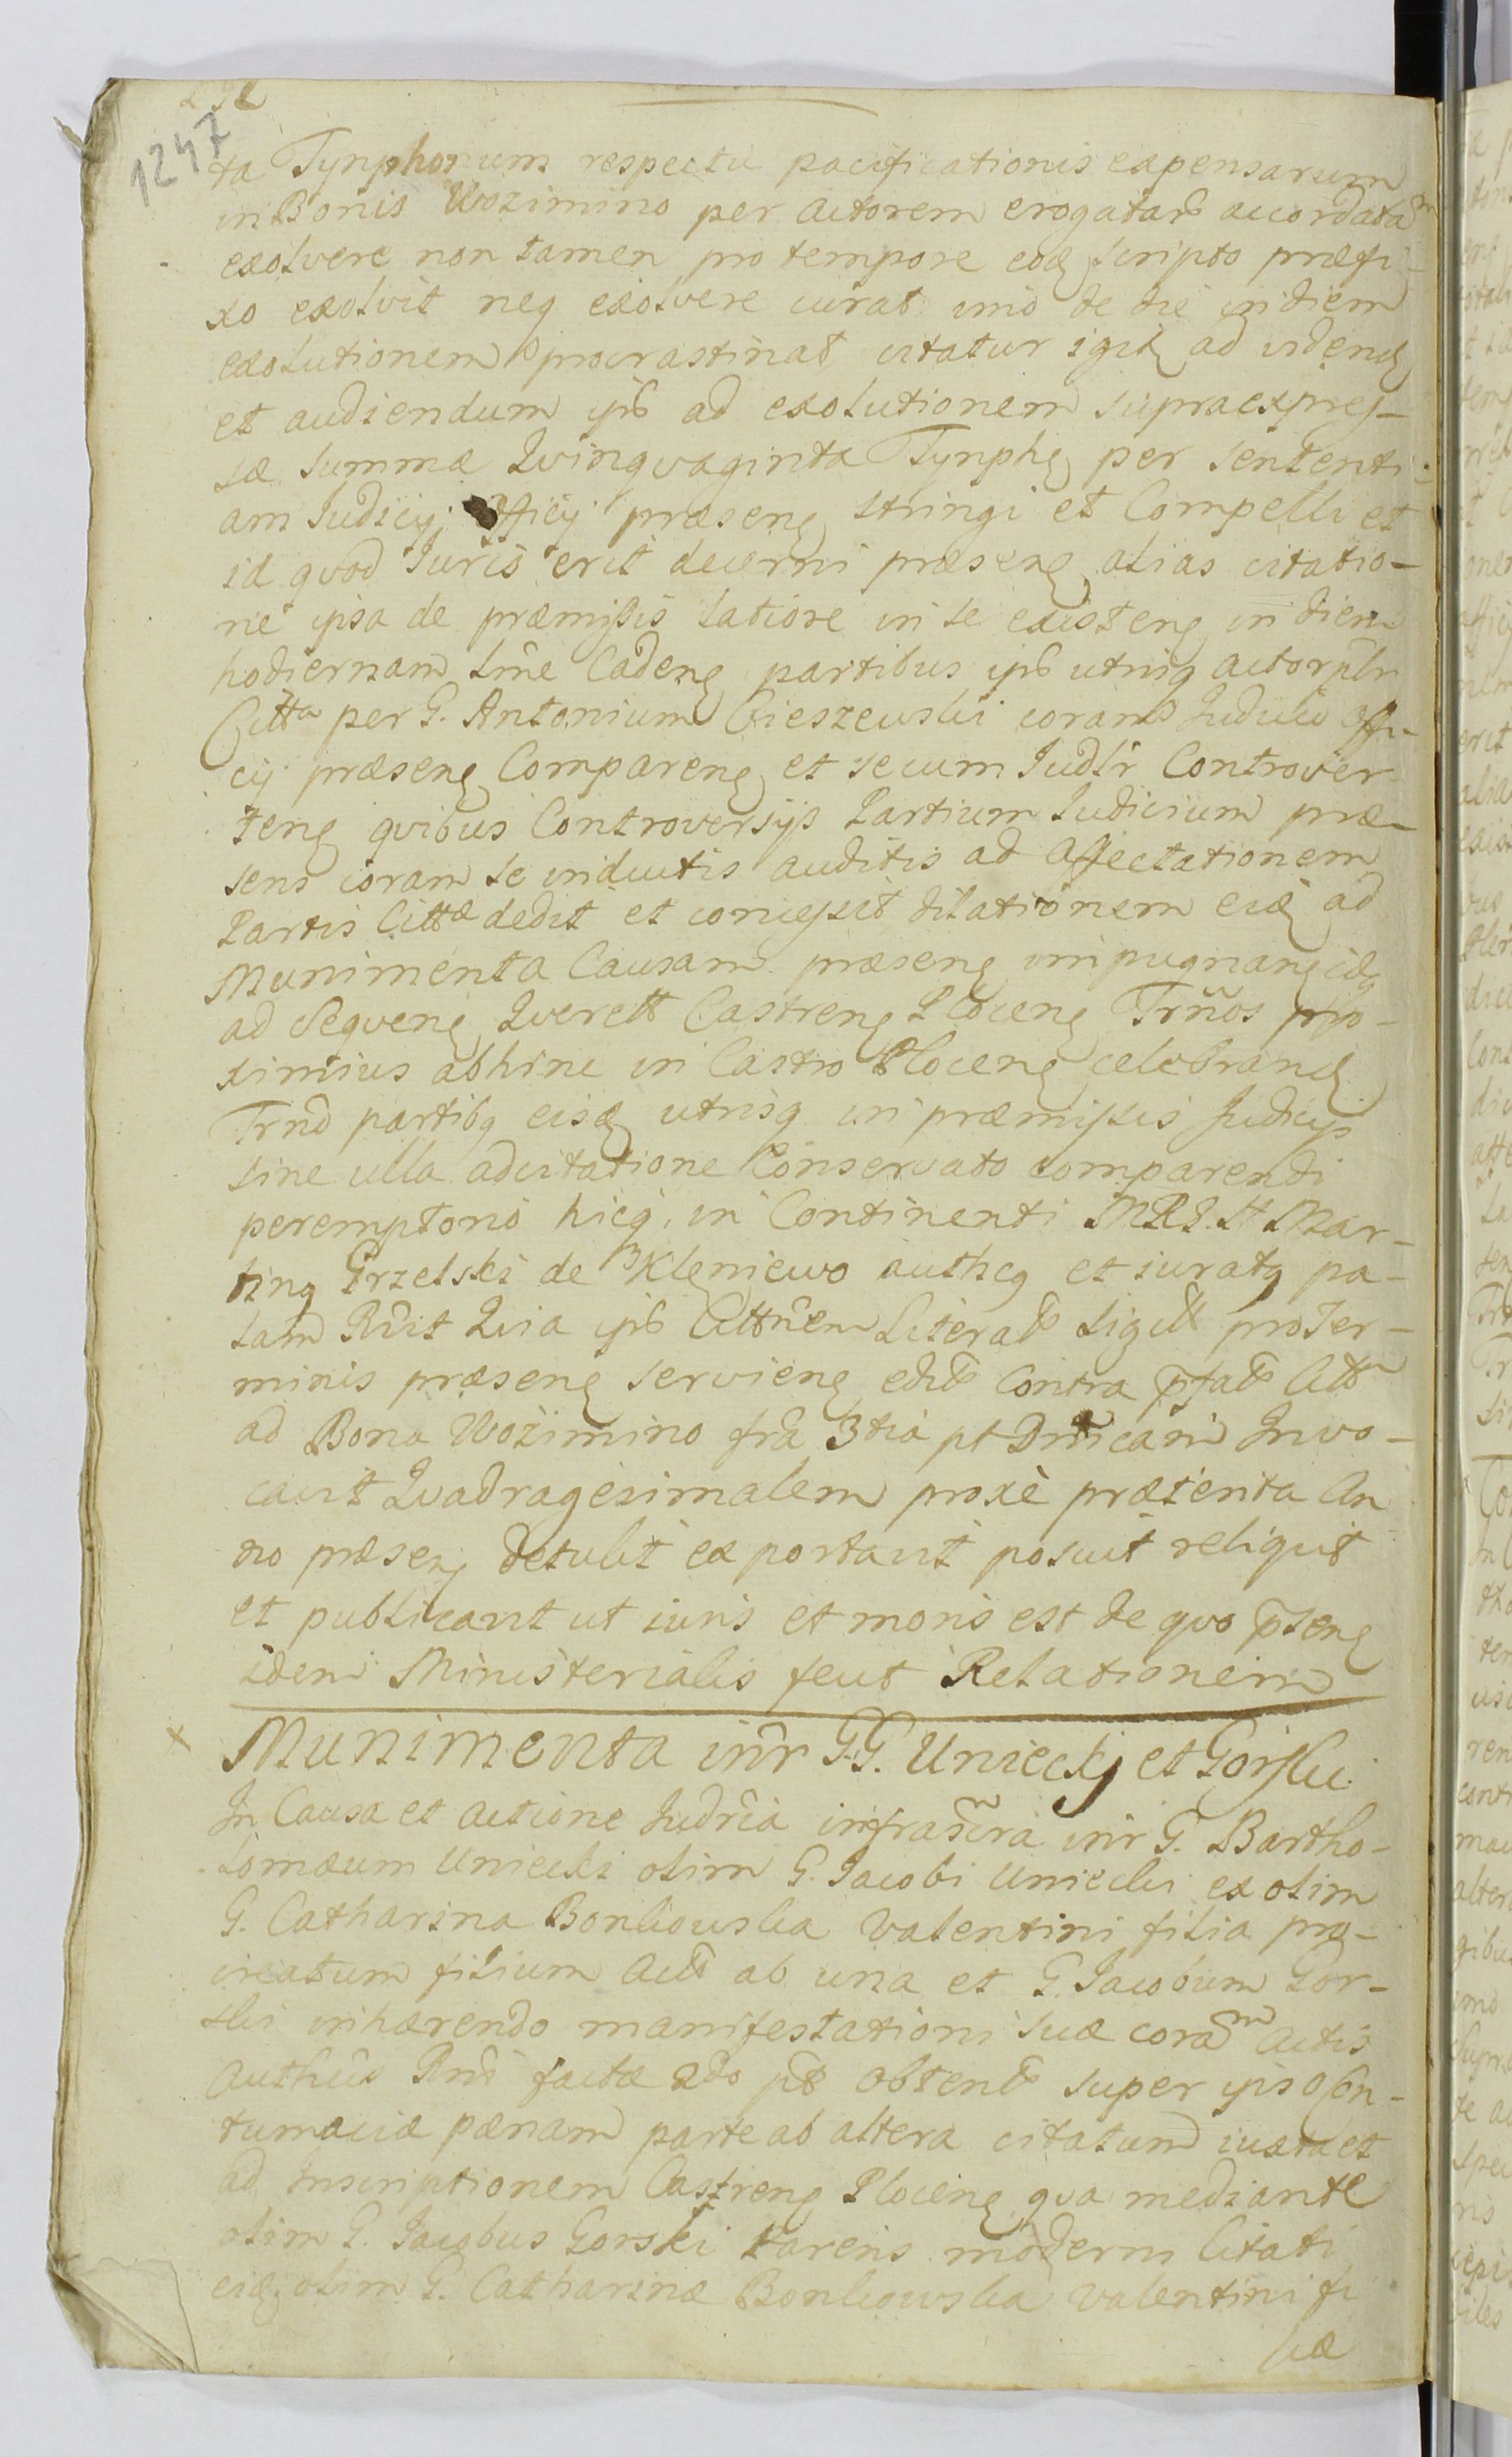 1247
ta Tynphorum respectu pacificationis expensarum
in Bonis Wozimino per Actorem erogatar accordatam
exolvere non tamen pro tempore eod scripto præfi-
xo exolvit neq exolvere curat imo de die in diem
exolutionem procrastinat citatur igit ad videnđ
et audiendum ips ad exolutionem supraexpres-
sæ summæ Qvinqvaginta Tynph per sententi-
am Judicij Officij præsen stringi et Compelli et
id qvod Juris erit decerni præsen alias citatio-
ne ipsa de præmissis latiore in se existen in diem
hodiernam Caden partibus ips utriq Actor
Citta per G. Antonium Cieszewski coram Judicio Offi-
cij præsen Comparen et secum Judlr Controver-
ten qvibus Controversijs Partium Judicium præ-
sens coram se inductis auditis ad Affectationem
Partis Cittæ dedit et concessit dilationem eid ad
Munimenta Causam præsen impugnan
ad Seqven Qverell Castren Plocen Trnos pro-
ximius abhinc in Castro Plocen celebrand
Trno partibq eisd utrisq in præmissis Judicijs
sine ulla adcitatione Conservato comparendi
peremptorio hicq in Continenti Mar-
tinq Grzelski de Kleniewo authcq et iuratq pa-
lam Rcit Qvia ips Cittnem Literal sigill pro Ter-
minis præsen servien edit Contra pfat Citt
ad Bona Wozimino fra 3tia pt Dnicam Invo-
cavit Qvadragesimalem proxe præterita An
no præsen detulit exportavit posuit reliquit
et publicavit ut iuris et moris est de qvo psen
idem Ministerialis fecit Relationem
x Munimenta intr G.G. Uniecki et Gorski
In Causa et Actione Judria infrascra intr G. Bartho-
lomæum Uniecki olim G. Jacobi Uniecki ex olim
G. Catharina Bonkowska Valentini filia pro-
creatum filium Act ab una et G. Jacobum Gor-
ski inhærendo manifestationi suæ coram Actis
Authcis factæ 2do obtent super ipso Con-
tumaciæ pænam parte ab altera citatum iuxta et
ad Inscriptionem Castren Plocen qva mediante
olim G. Jacobus Gorski Parens moderni Citati
eid olim G. Catharinæ Bonkowska Valentini fi
liæ